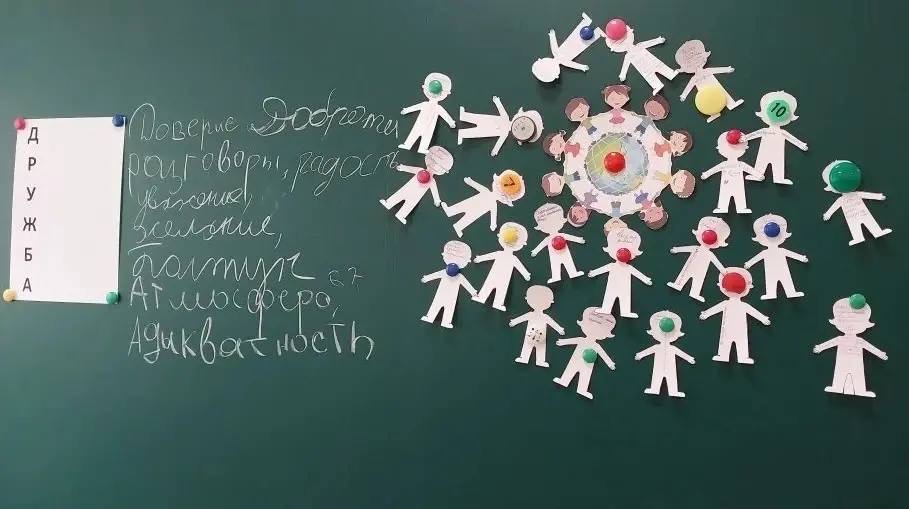 Д
Р
У
Ж
Б
А
Доверие Доброта
разговоры, радость
уважение,
желание,
болтун
67
Атмосфера,
Адикватность
10